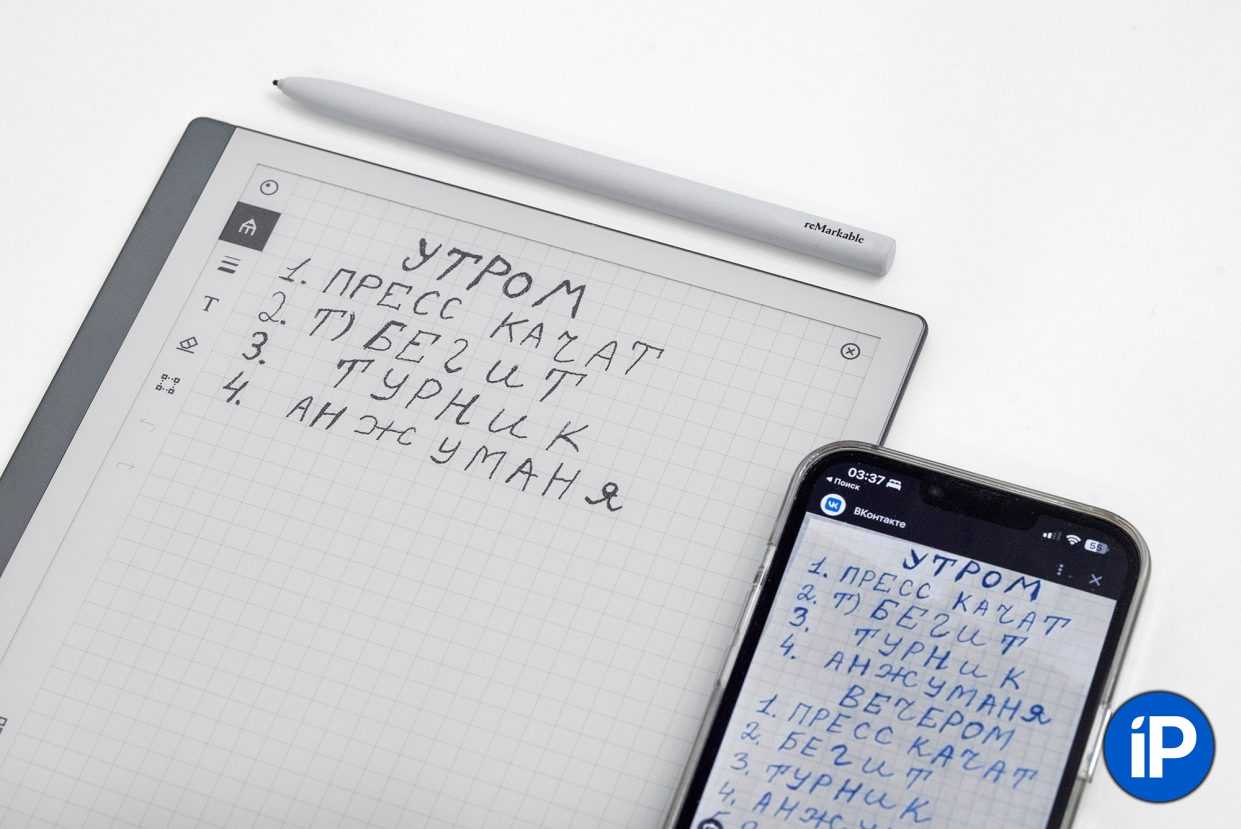 reMarkable
УТРОМ
1. ПРЕСС КАЧАТ
2. Т) БЕГИТ
3. ТУРНИК
4. АНЖУМАНЯ
T
03:37
Поиск
55
ВКонтакте
УТРОМ
1. ПРЕСС КАЧАТ
2. Т) БЕГИТ
3. ТУРНИК
4. АНЖУМАНЯ
ВЕЧЕРОМ
1. ПРЕСС КАЧАТ
2. БЕГИТ
3. ТУРНИК
4. АНЖУ
iP